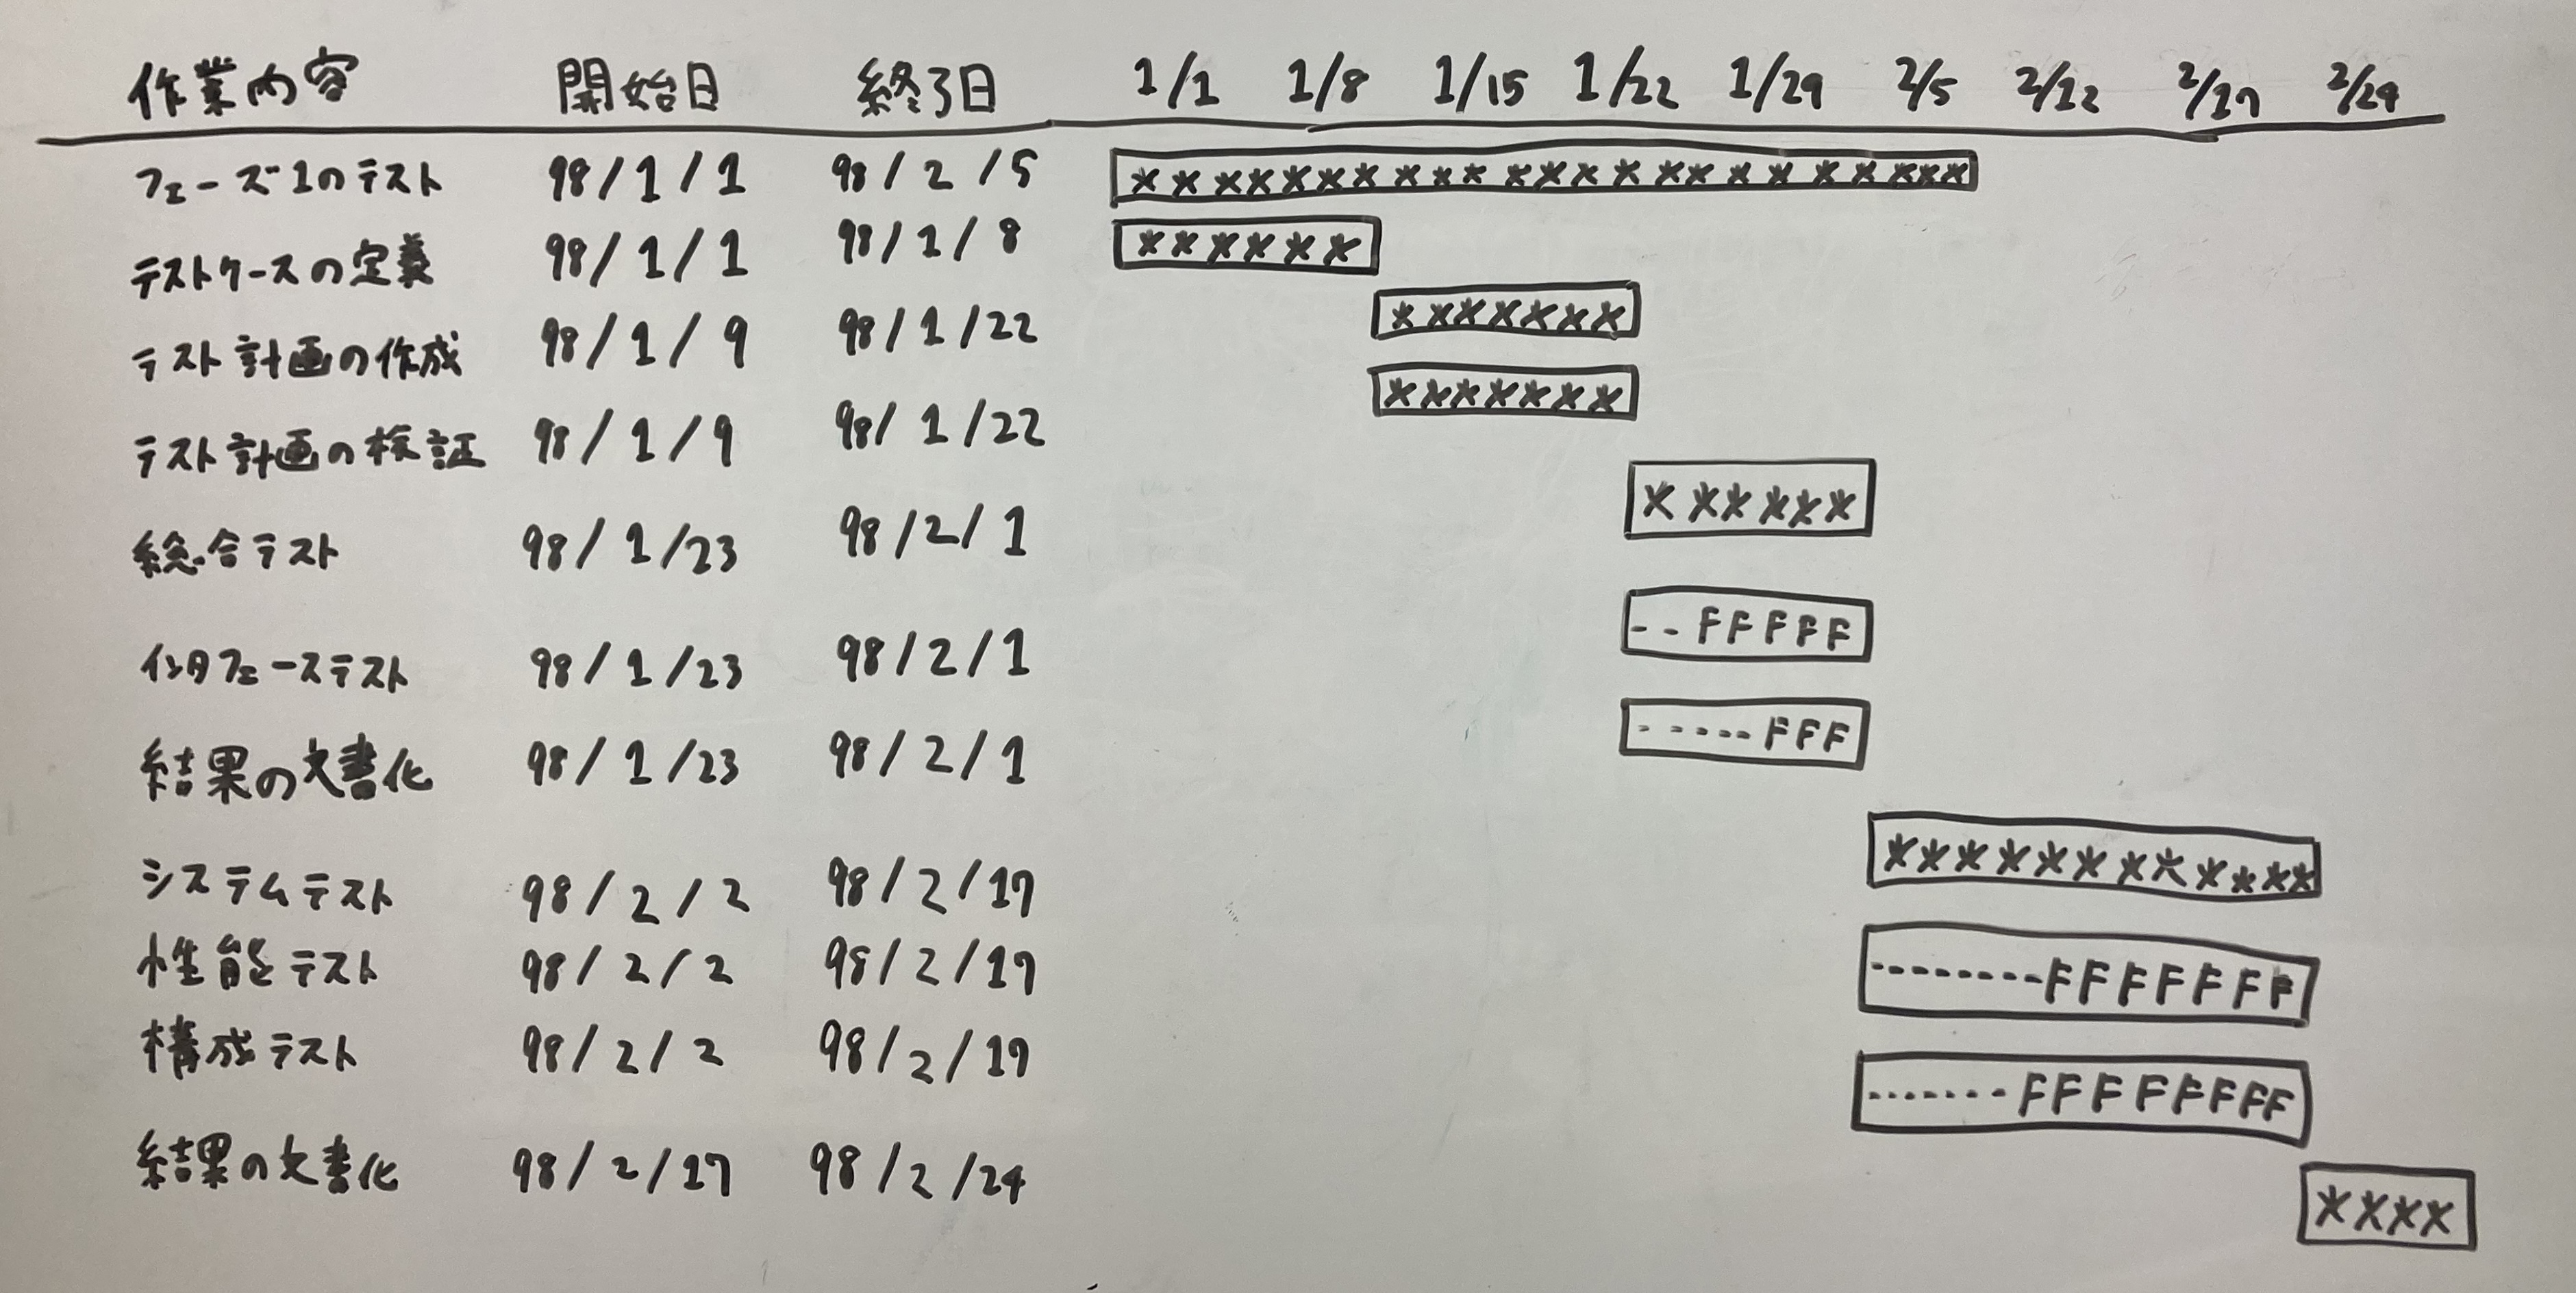 作業内容 開始日 終了日 1/1 1/8 1/15 1/22 1/29 2/5 2/12 2/17 2/24
フェーズ1のテスト 98/1/1 98/2/5 ***********************
テストケースの定義 98/1/1 98/1/8 ******
テスト計画の作成 98/1/9 98/1/22 *******
テスト計画の検証 98/1/9 98/1/22 *******
総合テスト 98/1/23 98/2/1 ******
インタフェーステスト 98/1/23 98/2/1 --FFFFF
結果の文書化 98/1/23 98/2/1 ------FFF
システムテスト 98/2/2 98/2/17 ************
性能テスト 98/2/2 98/2/17 ---------FFFFFFF
構成テスト 98/2/2 98/2/17 --------FFFFFFFF
結果の文書化 98/2/17 98/2/24 ****